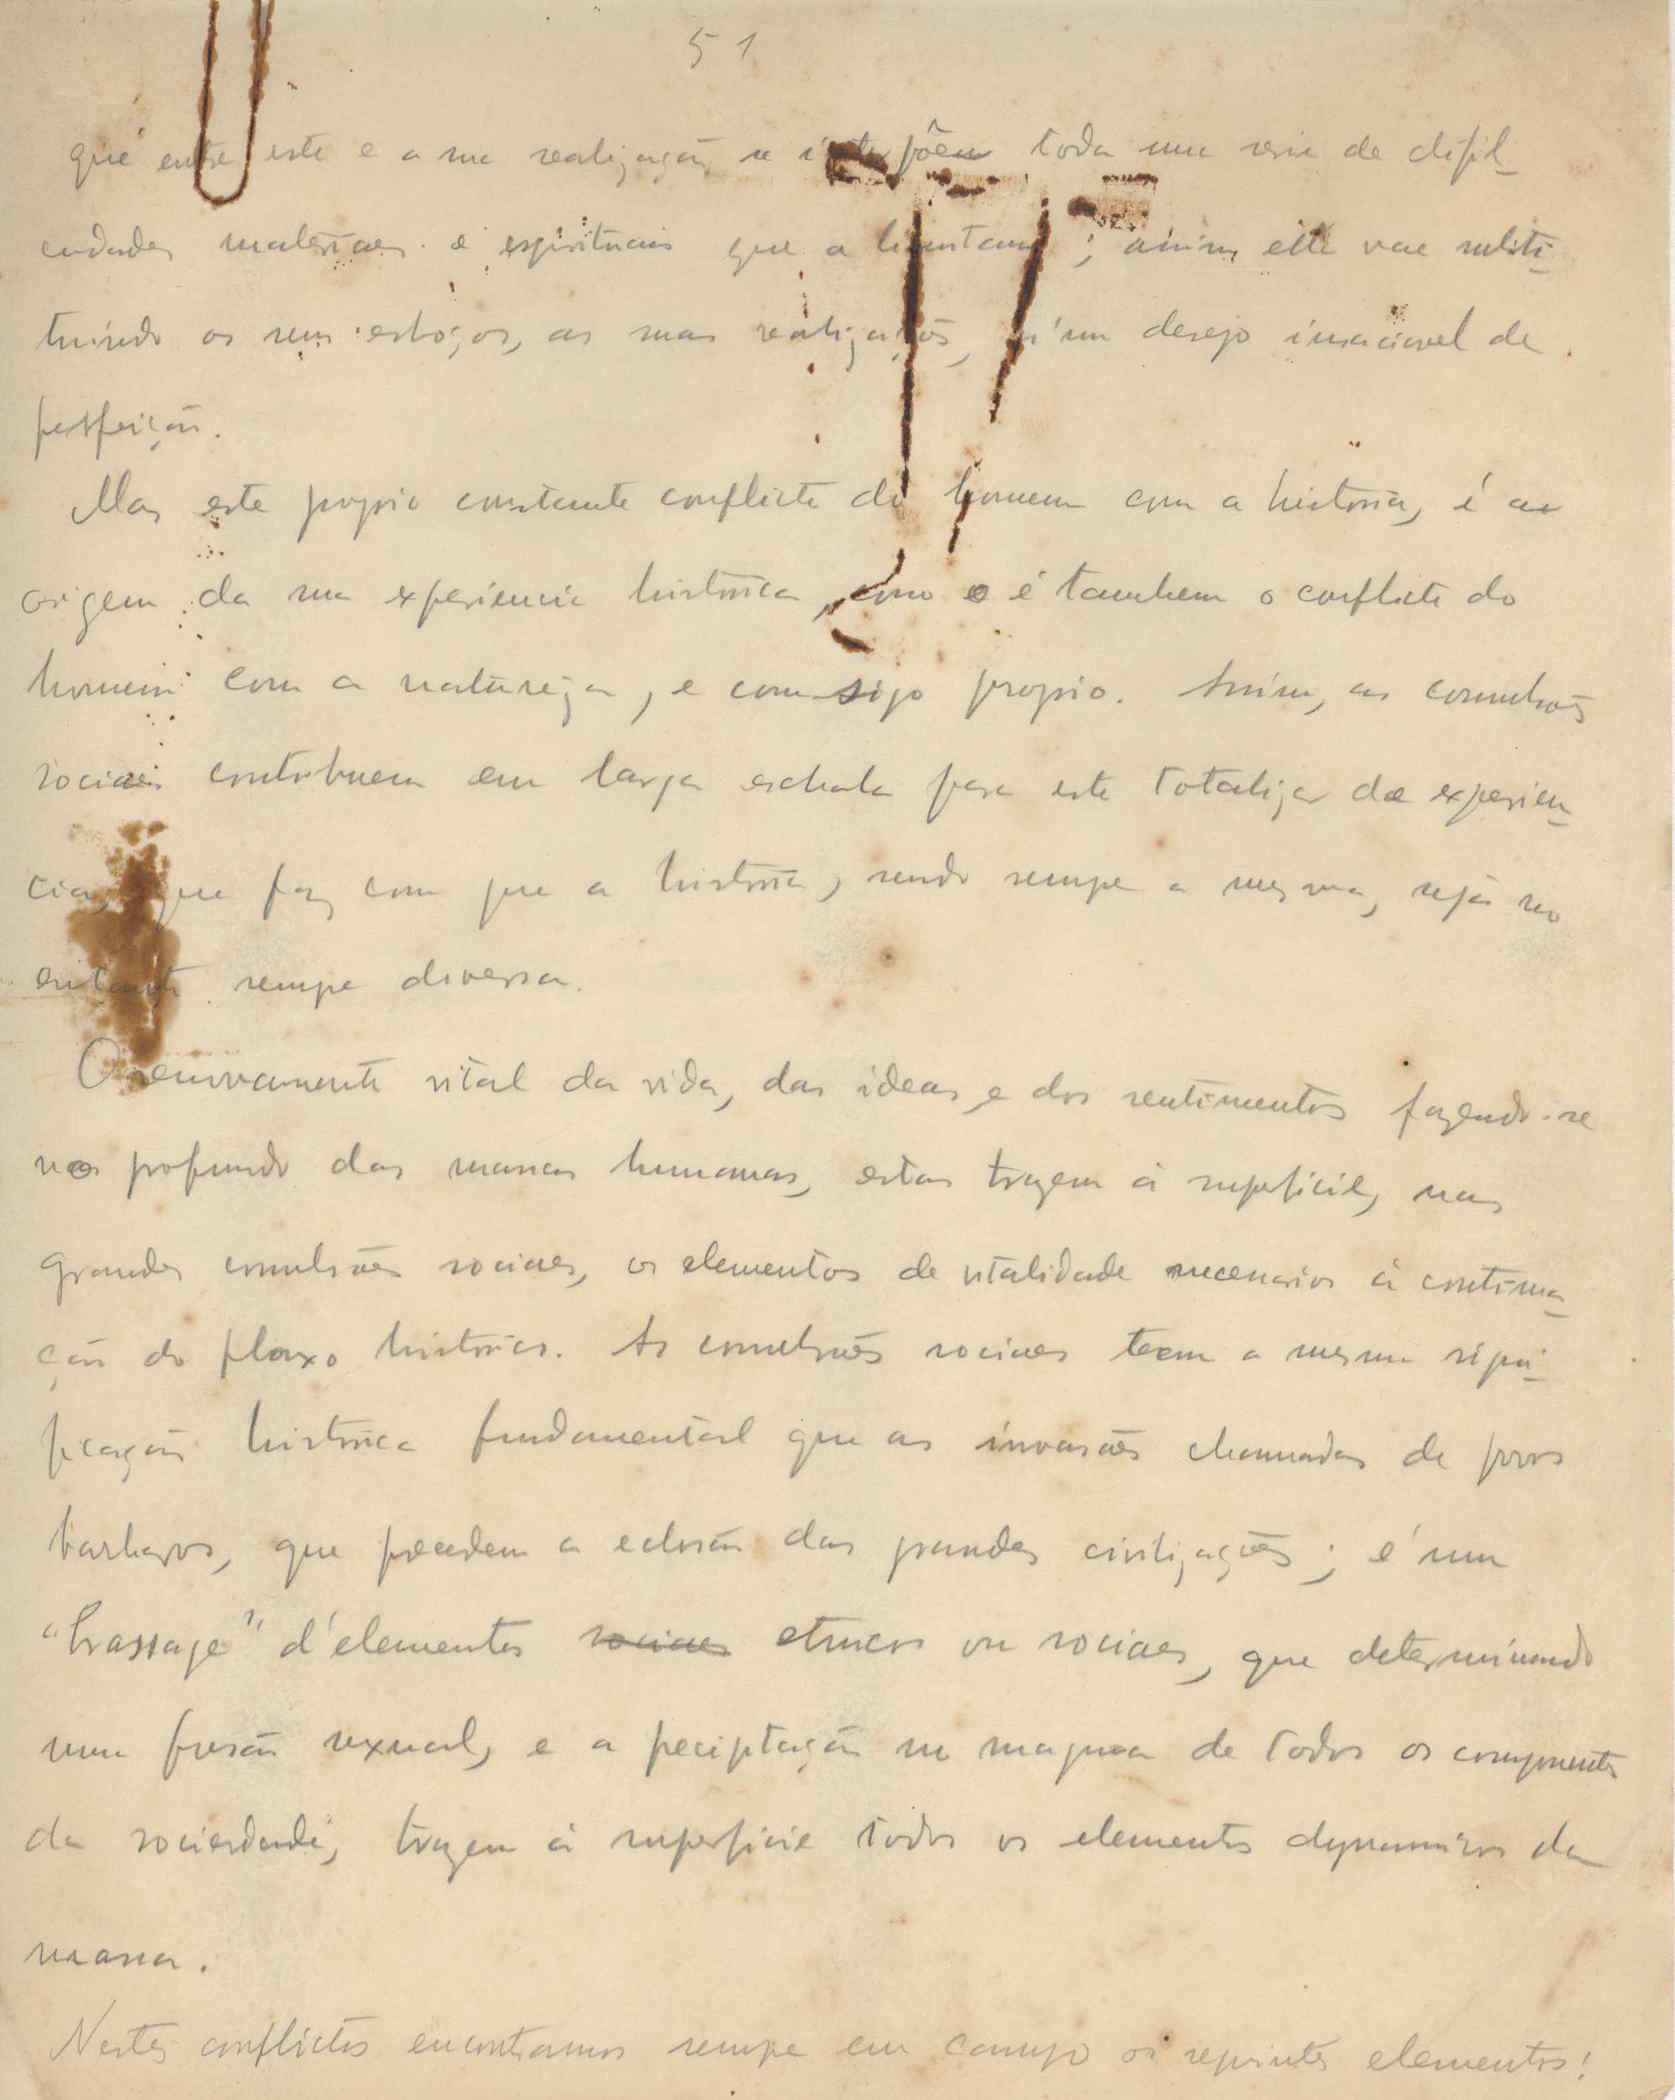 51
que entre este e a sua realização se interpõem toda uma serie de difil_
culdades materiaes e espirituais que a limitam; assim elle vae substi_
tuindo os seus esboços, as suas realizações, n'um desejo insaciavel de
perfeição.
Mas este proprio constante conflicto do homem com a historia, é a
origem da sua experiencia historica, como o é tambem o conflicto do
homem com a natureza, e comsigo proprio. Assim, as convulsões
sociaes contribuem em larga eschala para este totalizar da experien_
cia, que faz com que a historia, sendo sempre a mesma, seja no
entanto sempre diversa.
O renovamento vital da vida, das ideas, e dos sentimentos fazendo-se
no profundo das massas humanas, estas trazem á superficie, nas
grandes convulsões sociaes, os elementos de vitalidade necessarios á continua_
ção do fluxo historico. As convulsões sociaes teem a mesma signi_
ficação historica fundamental que as invasões chamadas de povos
barbaros, que precedem a eclosão das grandes civilizações; é um
"brassage" d'elementos sociaes etnicos ou sociaes, que determinando
uma fusão sexual, e a precipitação no magma de todos os componentes
da sociedade, trazem á superficie todos os elementos dynamicos da
massa.
Nestes conflictos encontramos sempre em campo os seguintes elementos: